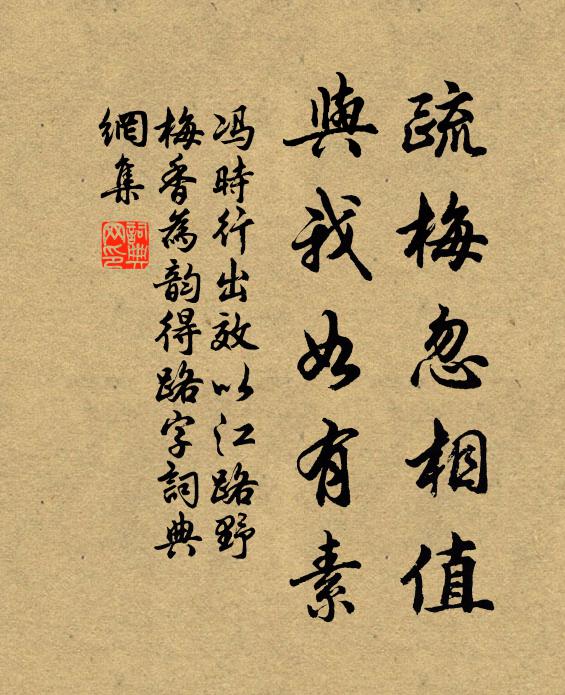 疏梅忽相值
與我如有素
冯時行出效以江路野
梅香為韵得路字詞典
網集
詞典网印